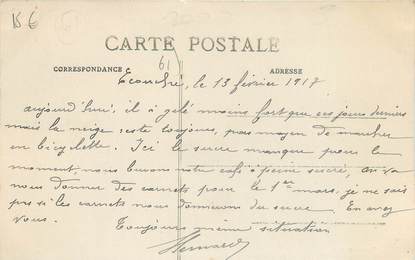 15 €
CARTE POSTALE
61
CORRESPONDANCE
ADRESSE
Ecouché, le 13 février 1917
aujourd'hui, il a gelé moins fort que ces jours derniers
mais la neige reste toujours, pas moyen de marcher
en bicyclette. Ici le sucre manque pour le
moment, nous buvons notre café à peine sucré, on va
nous donner des carnets pour le 1er mars, je ne sais
pas si les carnets nous donnerons du sucre. En avez
vous.
Toujours même situation